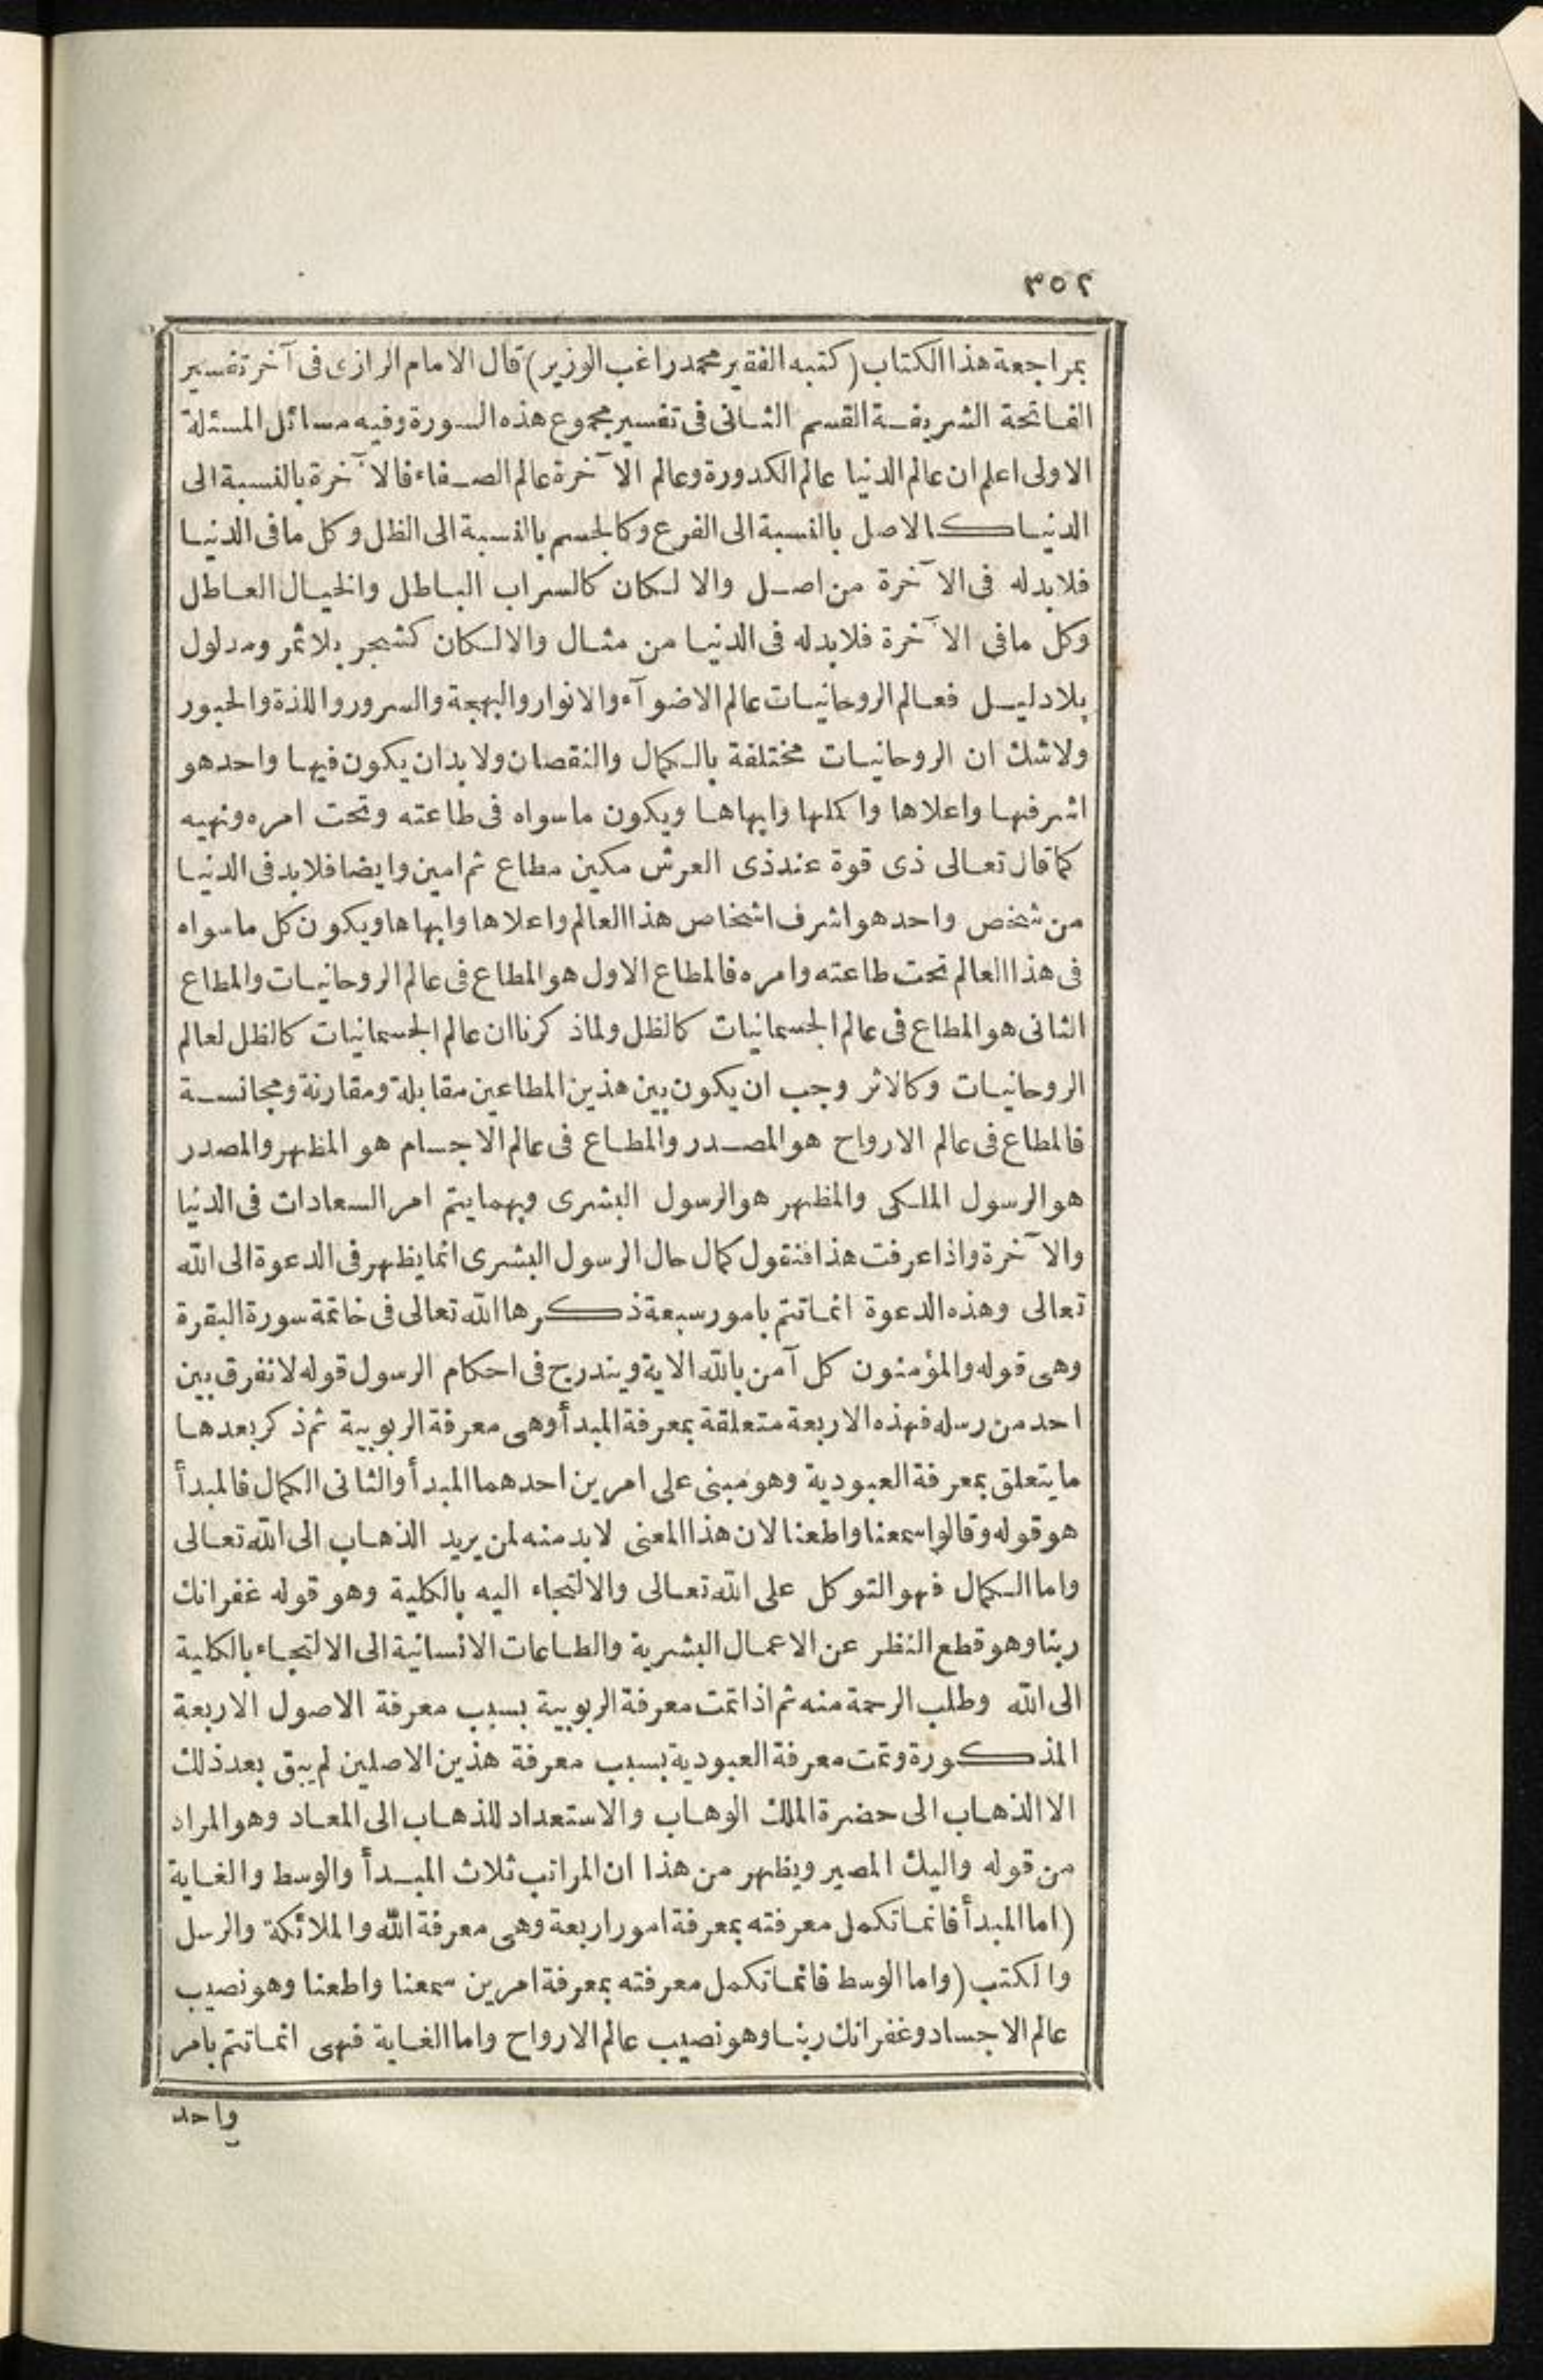 ٣٥٢
بمراجعة هذا الكتاب (كتبه الفقير محمد راغب الوزير) قال الامام الرازى فى آخر تفسير
الفاتحة الشريفة القسم الثانى فى تفسير مجموع هذه السورة وفيه مسائل المسئلة
الاولى اعلم ان عالم الدنيا عالم الكدورة وعالم الآخرة عالم الصفاء فالآخرة بالنسبة الى
الدنيا كالاصل بالنسبة الى الفرع وكالجسم بالنسبة الى الظل وكل ما فى الدنيا
فلا بد له فى الآخرة من اصل والا لكان كالسراب الباطل والخيال العاطل
وكل ما فى الآخرة فلا بد له فى الدنيا من مثال والا لكان كشجر بلا ثمر ومدلول
بلا دليل فعالم الروحانيات عالم الاضوآء والانوار والبهجة والسرور واللذة والحبور
ولا شك ان الروحانيات مختلفة بالكمال والنقصان ولا بد ان يكون فيها واحد هو
اشرفها واعلاها واكملها وابهاها ويكون ما سواه فى طاعته وتحت امره ونهيه
كما قال تعالى ذى قوة عند ذى العرش مكين مطاع ثم امين وايضا فلا بد فى الدنيا
من شخص واحد هو اشرف اشخاص هذا العالم واعلاها وابهاها ويكون كل ما سواه
فى هذا العالم تحت طاعته وامره فالمطاع الاول هو المطاع فى عالم الروحانيات والمطاع
الثانى هو المطاع فى عالم الجسمانيات كالظل ولما ذكرنا ان عالم الجسمانيات كالظل لعالم
الروحانيات وكالاثر وجب ان يكون بين هذين المطاعين مقابلة ومقارنة ومجانسة
فالمطاع فى عالم الارواح هو المصدر والمطاع فى عالم الاجسام هو المظهر والمصدر
هو الرسول الملكى والمظهر هو الرسول البشرى وبهما يتم امر السعادات فى الدنيا
والآخرة واذا عرفت هذا فنقول كمال حال الرسول البشرى انما يظهر فى الدعوة الى الله
تعالى وهذه الدعوة انما تتم بامور سبعة ذكرها الله تعالى فى خاتمة سورة البقرة
وهى قوله والمؤمنون كل آمن بالله الاية ويندرج فى احكام الرسول قوله لا نفرق بين
احد من رسله فهذه الاربعة متعلقة بمعرفة المبدأ وهى معرفة الربوبية ثم ذكر بعدها
ما يتعلق بمعرفة العبودية وهو مبنى على امرين احدهما المبدأ والثانى الكمال فالمبدأ
هو قوله وقالوا سمعنا واطعنا لان هذا المعنى لا بد منه لمن يريد الذهاب الى الله تعالى
واما الكمال فهو التوكل على الله تعالى والالتجاء اليه بالكلية وهو قوله غفرانك
ربنا وهو قطع النظر عن الاعمال البشرية والطاعات الانسانية الى الالتجاء بالكلية
الى الله وطلب الرحمة منه ثم اذا تمت معرفة الربوبية بسبب معرفة الاصول الاربعة
المذكورة وتمت معرفة العبودية بسبب معرفة هذين الاصلين لم يبق بعد ذلك
الا الذهاب الى حضرة الملك الوهاب والاستعداد للذهاب الى المعاد وهو المراد
من قوله واليك المصير ويظهر من هذا ان المراتب ثلاث المبدأ والوسط والغاية
(اما المبدأ فانما تكمل معرفته بمعرفة امور اربعة وهى معرفة الله والملائكة والرسل
والكتب (واما الوسط فانما تكمل معرفته بمعرفة امرين سمعنا واطعنا وهو نصيب
عالم الاجساد وغفرانك ربنا وهو نصيب عالم الارواح واما الغاية فهى انما تتم بامر
واحد